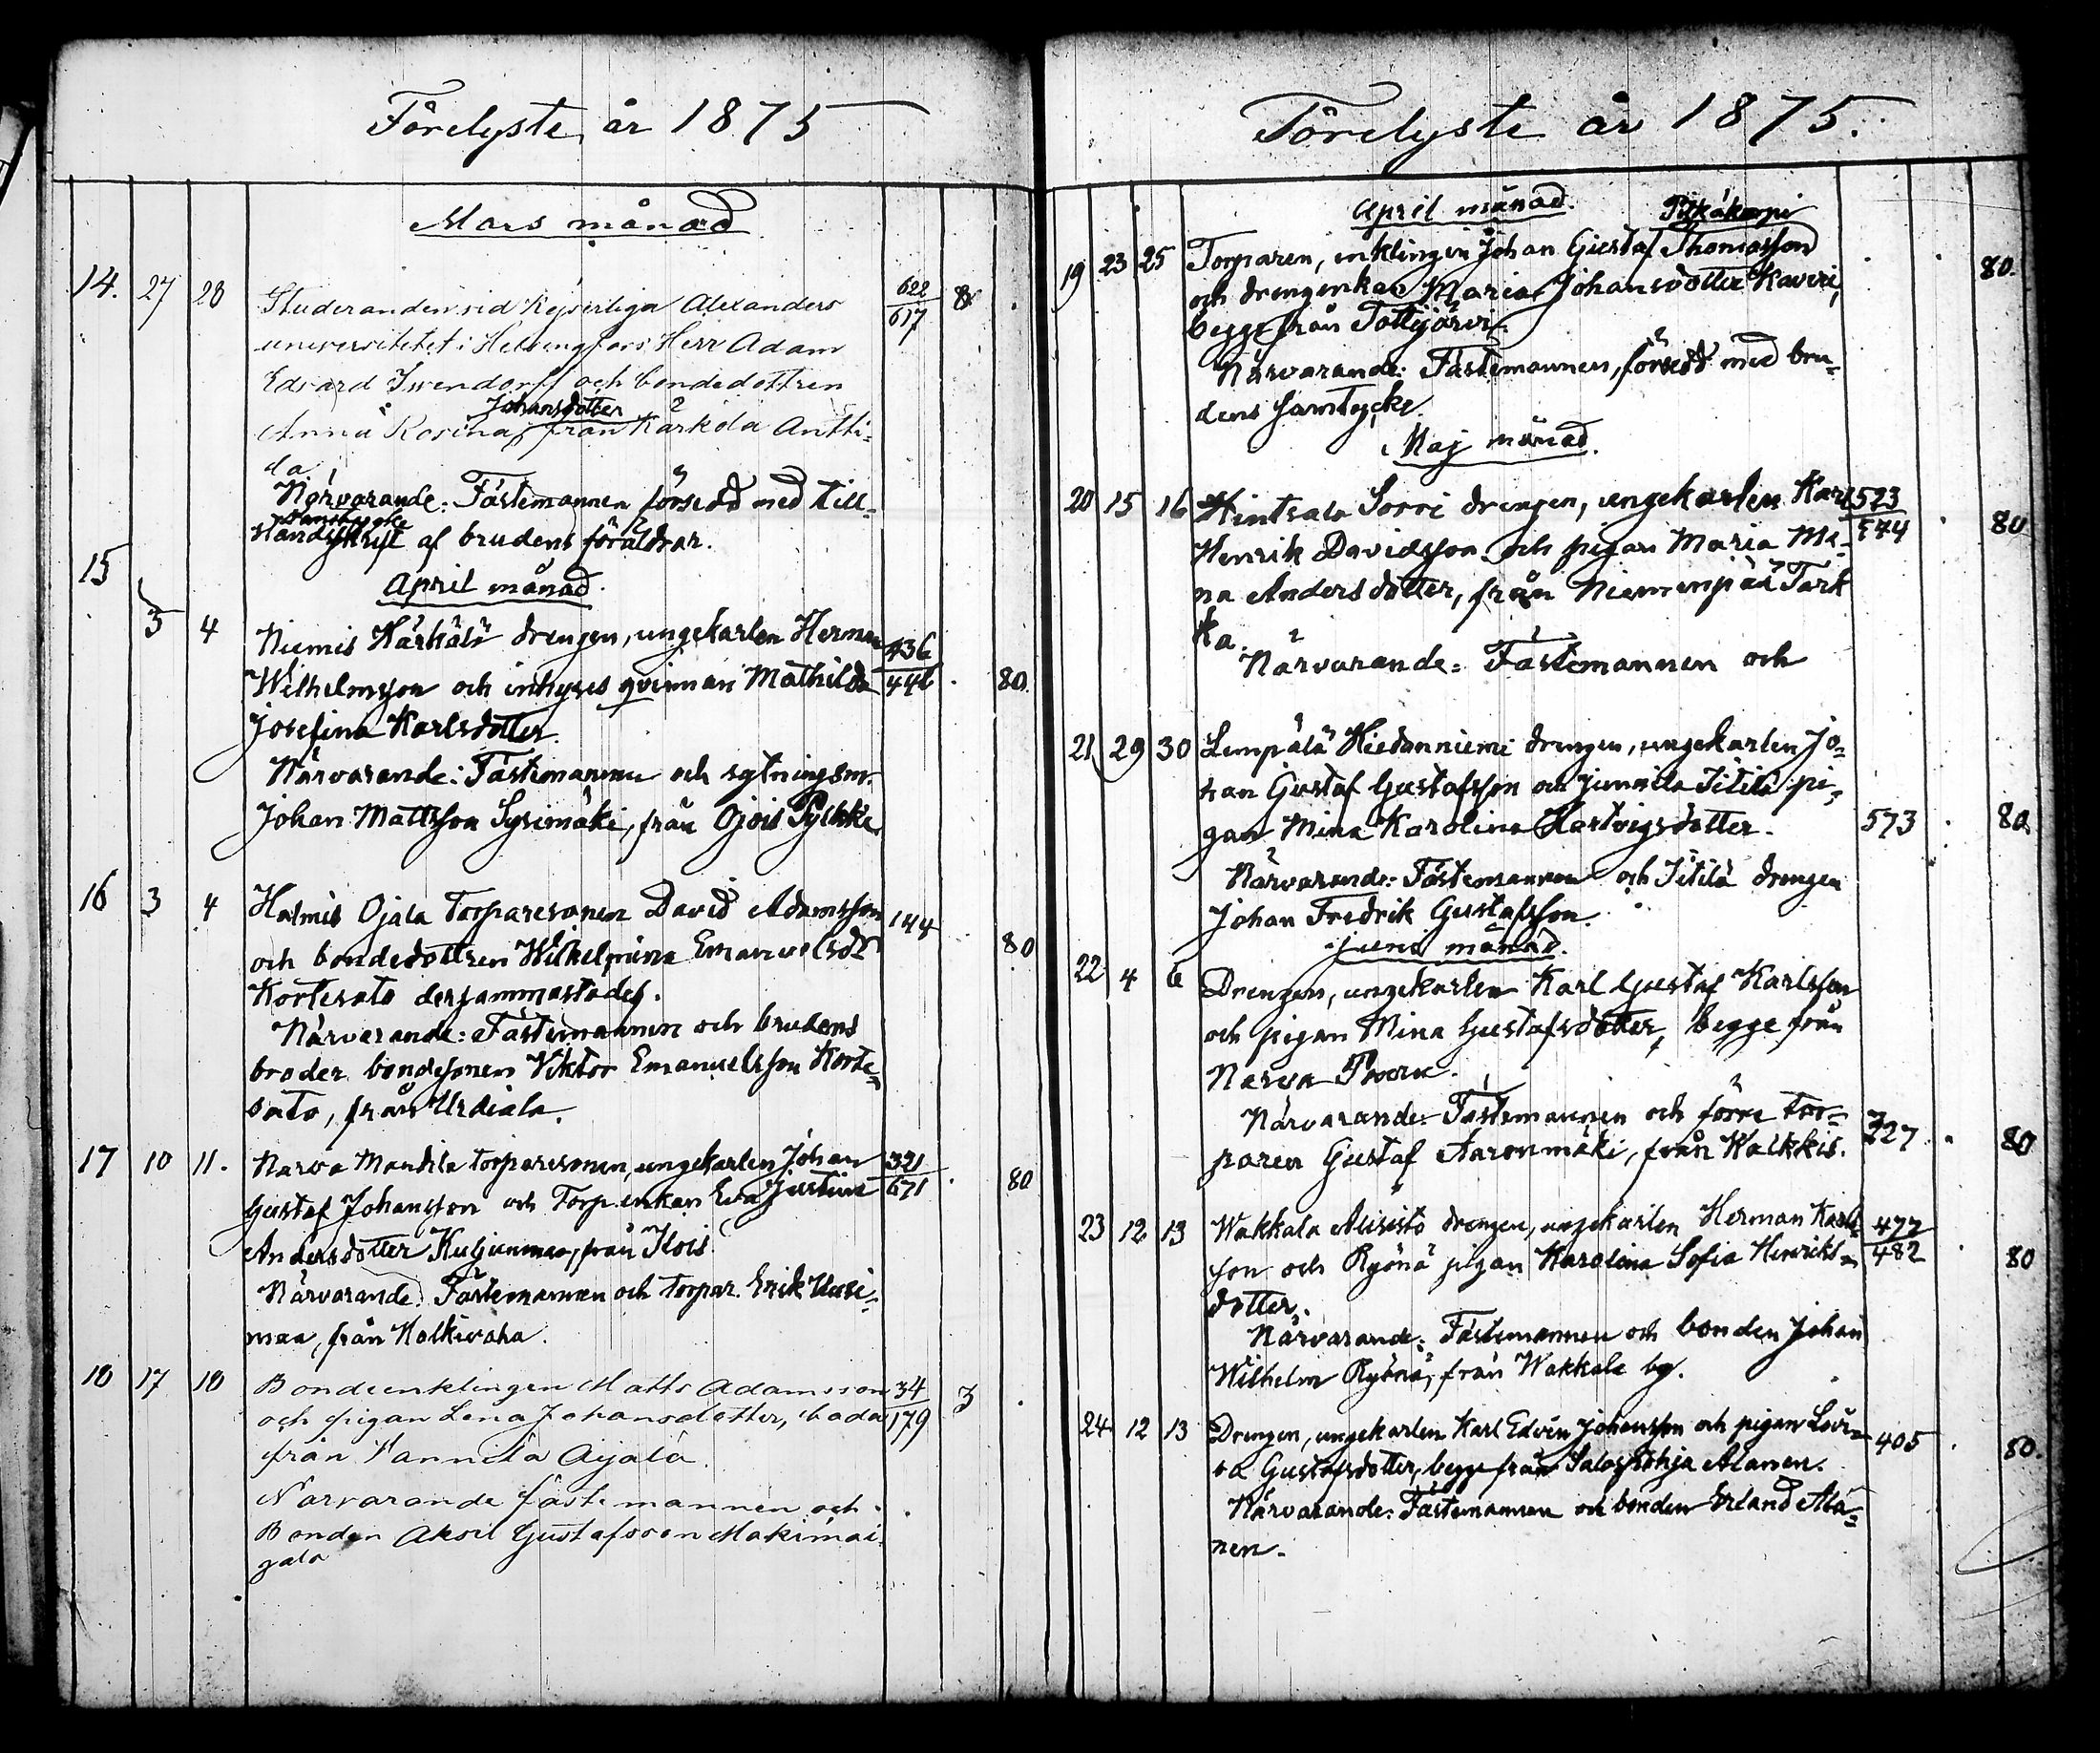 Förelyste år 1875
Mars månad
14. 27 28 Studeranden vid Kejserliga Alexanders 622/617 8
universitetet i Helsingfors Herr Adam
Edvard Iwendorff och bondedottren
Johansdotter
Anna Rosina, från Kärkölä Antti-
la
Närvarande: Fästemannen försedd med till-
samtycke
ståndskrift af brudens föräldrar.
15
April månad
3 4 Niemis Härkälä drengen, ungekarlen Herman 436/446
Wilhelmsson och inhyses qvinnan Mathilda 80
Josefina Karlsdotter.
Närvarande: Fästemannen och sytningsm.
Johan Mattsson Syrimäki, från Ojois Pylkkä.
16 3 4 Halmis Ojala Torparesonen David Adamsson 144
och bondedottren Wilhelmina Emanuelsdr 80
Kortesato dersammastädes.
Närvarande: Fästemannen och brudens
broder bondesonen Viktor Emanuelsson Korte-
sato, från Urdiala.
17 10 11. Narva Mandila torparesonen, ungekarlen Johan 321/671
Gustaf Johansson och Torp.enkan Eva Justina 80
Andersdotter Kuljunmaa, från Ilois.
Närvarande: Fästemannen och torpar. Erik Uusi-
maa, från Kolkivaha.
18 17 18 Bondeenklingen Matts Adamsson 34/179 3
och pigan Lena Johansdotter, båda
från Vannila Äijälä.
Närvarande fästemannen och
Bonden Aksel Gustafsson Mäkimai-
jala
Förelyste år 1875.
April månad.
Pitkäkorpi
19 23 25 Torparen, enklingen Johan Gustaf Thomasson
och drengenkan Maria Johansdotter Kaveri, 80.
begge från Tottijärvi.
Närvarande: Fästemannen, försedd med bru-
dens samtycke.
Maj månad.
20 15 16 Hintsala Sorri drengen, ungekarlen Karl 523/544
Henrik Davidsson och pigan Maria Me- 80
na Andersdotter, från Niemenpää Tark
ka.
Närvarande: Fästemannen och
21 29 30 Lempälä Hiedanniemi drengen, ungekarlen Jo-
han Gustaf Gustafsson och Junnila Iitilä pi-
gan Mina Karolina Hartvigsdotter. 573 80
Närvarande: Fästemannen och Iitilä drengen
Johan Fredrik Gustafsson.
Juni månad.
22 4 6 Drengen, ungekarlen Karl Gustaf Karlsson
och pigan Mina Gustafsdotter, begge från
Narva
Närvarande: Fästemannen och förre tor-
paren Gustaf Aaronmäki, från Kalkkis. 327 80
23 12 13 Wakkala Alisisto drengen, ungekarlen Herman Karls- 477/482
son och Ryönä pigan Karolina Sofia Henriks- 80
dotter.
Närvarande: Fästemannen och bonden Johan
Wilhelm Ryönä, från Wakkala by.
24 12 13 Drengen, ungekarlen Karl Edvin Johansson och pigan Lovi- 405
sa Gustafsdotter, begge från Salospohja Alanen. 80.
Närvarande: Fästemannen och bonden Erland Ala-
nen.